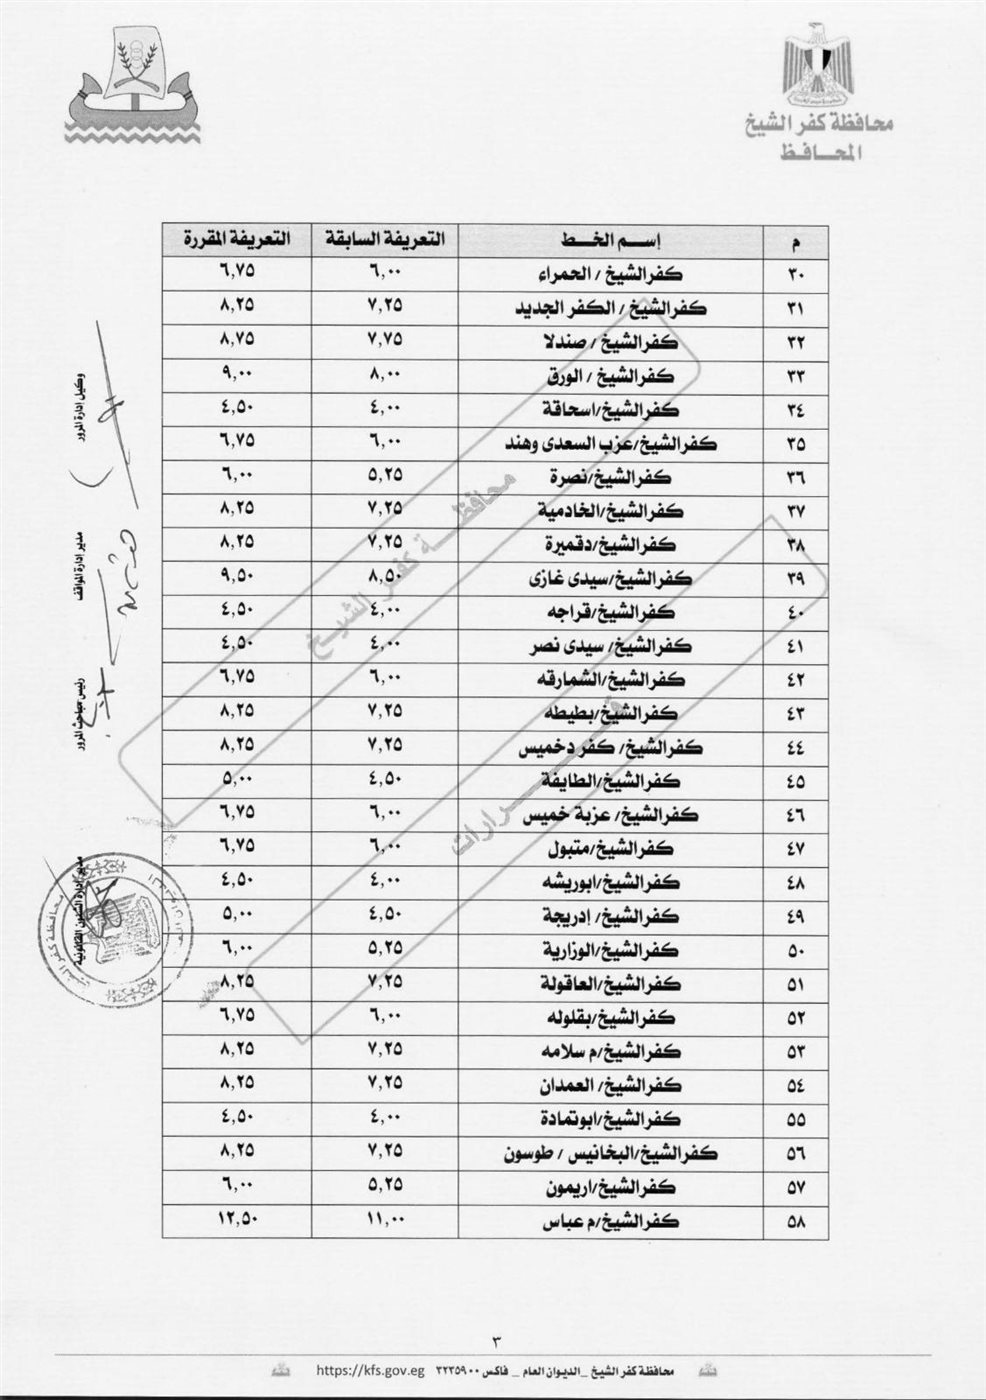 محافظة كفر الشيخ
المحافظ
م إسم الخط التعريفة السابقة التعريفة المقررة
٣٠ كفرالشيخ / الحمراء ٦,٠٠ ٦,٧٥
٣١ كفرالشيخ / الكفر الجديد ٧,٢٥ ٨,٢٥
٣٢ كفرالشيخ / صندلا ٧,٧٥ ٨,٧٥
٣٣ كفرالشيخ / الورق ٨,٠٠ ٩,٠٠
٣٤ كفرالشيخ/اسحاقة ٤,٠٠ ٤,٥٠
٣٥ كفرالشيخ/عزب السعدى وهند ٦,٠٠ ٦,٧٥
٣٦ كفرالشيخ/نصرة ٥,٢٥ ٦,٠٠
٣٧ كفرالشيخ/الخادمية ٧,٢٥ ٨,٢٥
٣٨ كفرالشيخ/دقميرة ٧,٢٥ ٨,٢٥
٣٩ كفرالشيخ/سيدى غازى ٨,٥٠ ٩,٥٠
٤٠ كفرالشيخ/قراجه ٤,٠٠ ٤,٥٠
٤١ كفرالشيخ/ سيدى نصر ٤,٠٠ ٤,٥٠
٤٢ كفرالشيخ/الشمارقه ٦,٠٠ ٦,٧٥
٤٣ كفرالشيخ/بطيطه ٧,٢٥ ٨,٢٥
٤٤ كفرالشيخ/ كفر دخميس ٧,٢٥ ٨,٢٥
٤٥ كفرالشيخ/الطايفة ٤,٥٠ ٥,٠٠
٤٦ كفرالشيخ/ عزبة خميس ٦,٠٠ ٦,٧٥
٤٧ كفرالشيخ/متبول ٦,٠٠ ٦,٧٥
٤٨ كفرالشيخ/ابوريشه ٤,٠٠ ٤,٥٠
٤٩ كفرالشيخ/ إدريجة ٤,٥٠ ٥,٠٠
٥٠ كفرالشيخ/الوزارية ٥,٢٥ ٦,٠٠
٥١ كفرالشيخ/العاقولة ٧,٢٥ ٨,٢٥
٥٢ كفرالشيخ/بقلوله ٦,٠٠ ٦,٧٥
٥٣ كفرالشيخ/م سلامه ٧,٢٥ ٨,٢٥
٥٤ كفرالشيخ/ العمدان ٧,٢٥ ٨,٢٥
٥٥ كفرالشيخ/ابوتمادة ٤,٠٠ ٤,٥٠
٥٦ كفرالشيخ/البخانيس / طوسون ٧,٢٥ ٨,٢٥
٥٧ كفرالشيخ/اريمون ٥,٢٥ ٦,٠٠
٥٨ كفرالشيخ/م عباس ١١,٠٠ ١٢,٥٠
محافظة كفر الشيخ
قرارات
وكيل إدارة المرور
مدير إدارة المواقف
رئيس مباحث المرور
مدير إدارة الشئون القانونية
محافظة كفر الشيخ
٣
محافظة كفر الشيخ _ الديوان العام _ فاكس ٣٢٣٥٩٠٠ https://kfs.gov.eg